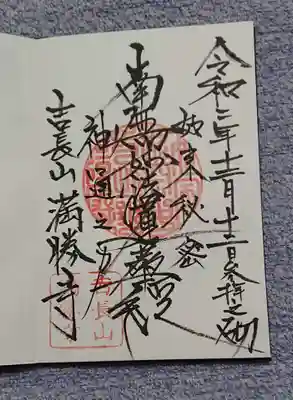 令和二年十二月十二日参拝之砌
如来秘密
南無妙法蓮華経
神通之力
吉長山 満勝寺
吉長山